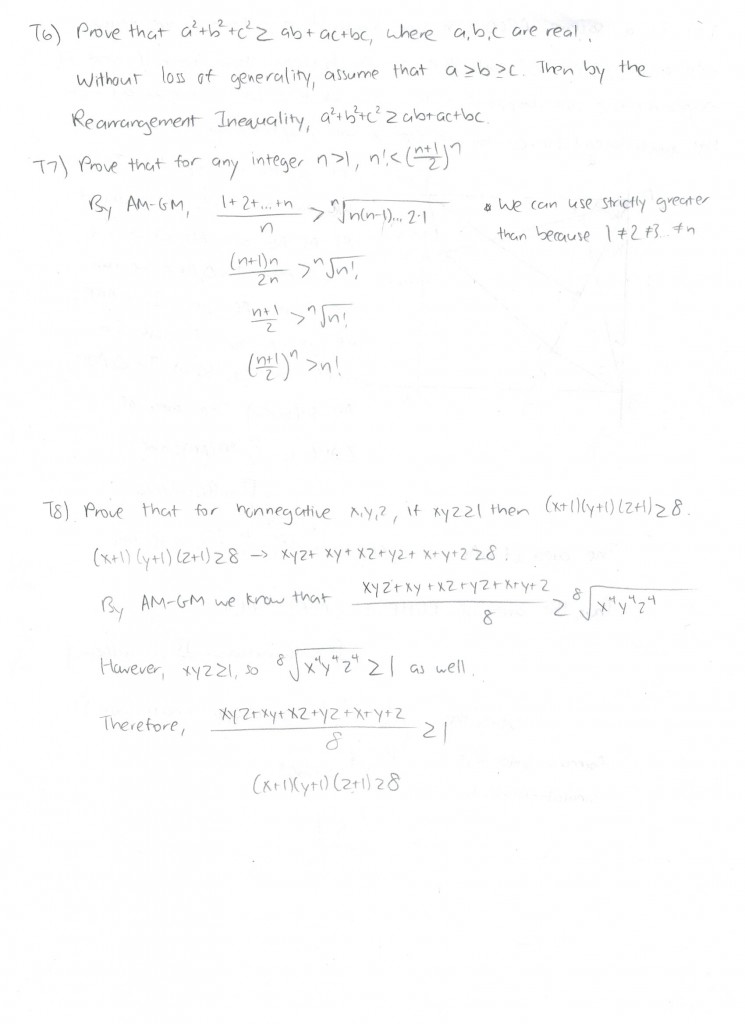 T6) Prove that a²+b²+c² ≥ ab + ac+bc, where a,b,c are real.
Without loss of generality, assume that a ≥ b ≥ c. Then by the
Rearrangement Inequality, a²+b²+c² ≥ ab+ac+bc.
T7) Prove that for any integer n>1, n! < ((n+1)/2)^n
By AM-GM, (1+2+...+n)/n > ⁿ√(n(n-1)...2·1) * We can use strictly greater
than because 1≠2≠3...≠n
((n+1)n)/(2n) > ⁿ√n!
(n+1)/2 > ⁿ√n!
((n+1)/2)^n > n!
T8) Prove that for nonnegative x,y,z, if xyz≥1 then (x+1)(y+1)(z+1)≥8.
(x+1)(y+1)(z+1)≥8 → xyz+ xy+ xz+yz+ x+y+z ≥8.
By AM-GM we know that (xyz+xy+xz+yz+x+y+z)/8 ≥ ⁸√(x⁴y⁴z⁴)
However, xyz≥1, so ⁸√(x⁴y⁴z⁴) ≥1 as well.
Therefore, (xyz+xy+xz+yz+x+y+z)/8 ≥1
(x+1)(y+1)(z+1)≥8